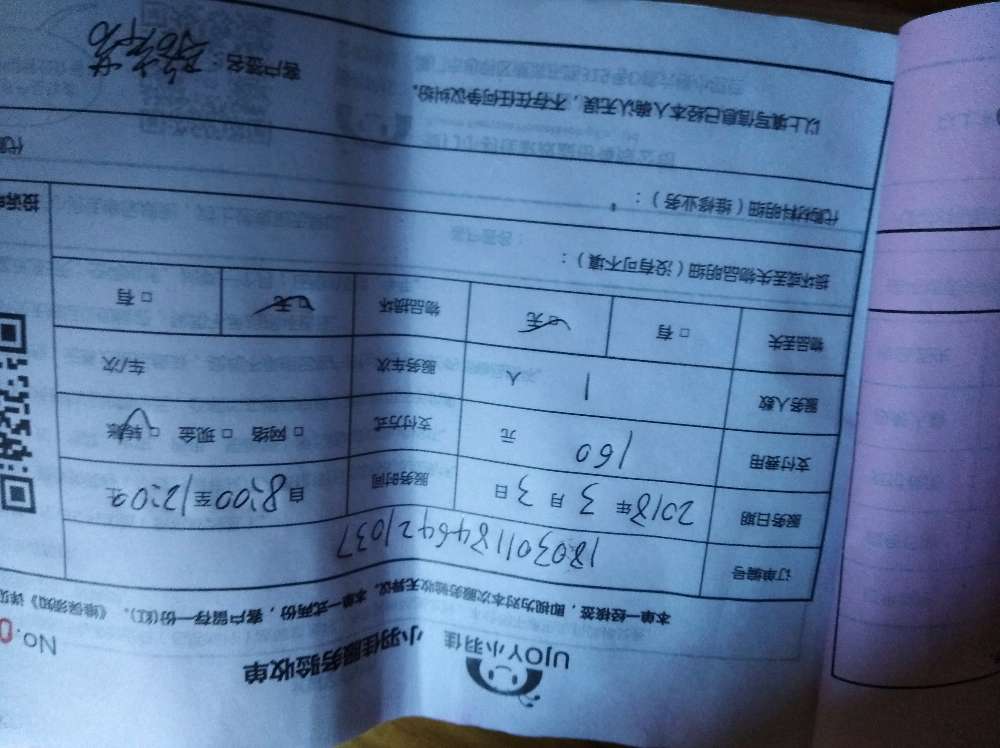 UJOY小羽佳 小羽佳服务验收单
No.0
本单一经核签,即视为对本次服务验收无异议。本单一式两份,客户留存一份(红)。《维保须知》详见
订单编号 1803011846421037
服务日期 2018年3月3日 服务时间 自8:00至12:0
支付费用 160 元 支付方式 □网络 □现金 □转账
服务人数 1 人 服务车次 车/次
物品丢失 □有 □无 物品损坏 □无 □有
损坏或丢失物品明细(没有可不填):
投诉电
代购材料明细(维修业务):
代购
以上填写信息已经本人确认无误,不存在任何争议纠纷。
客户签名: